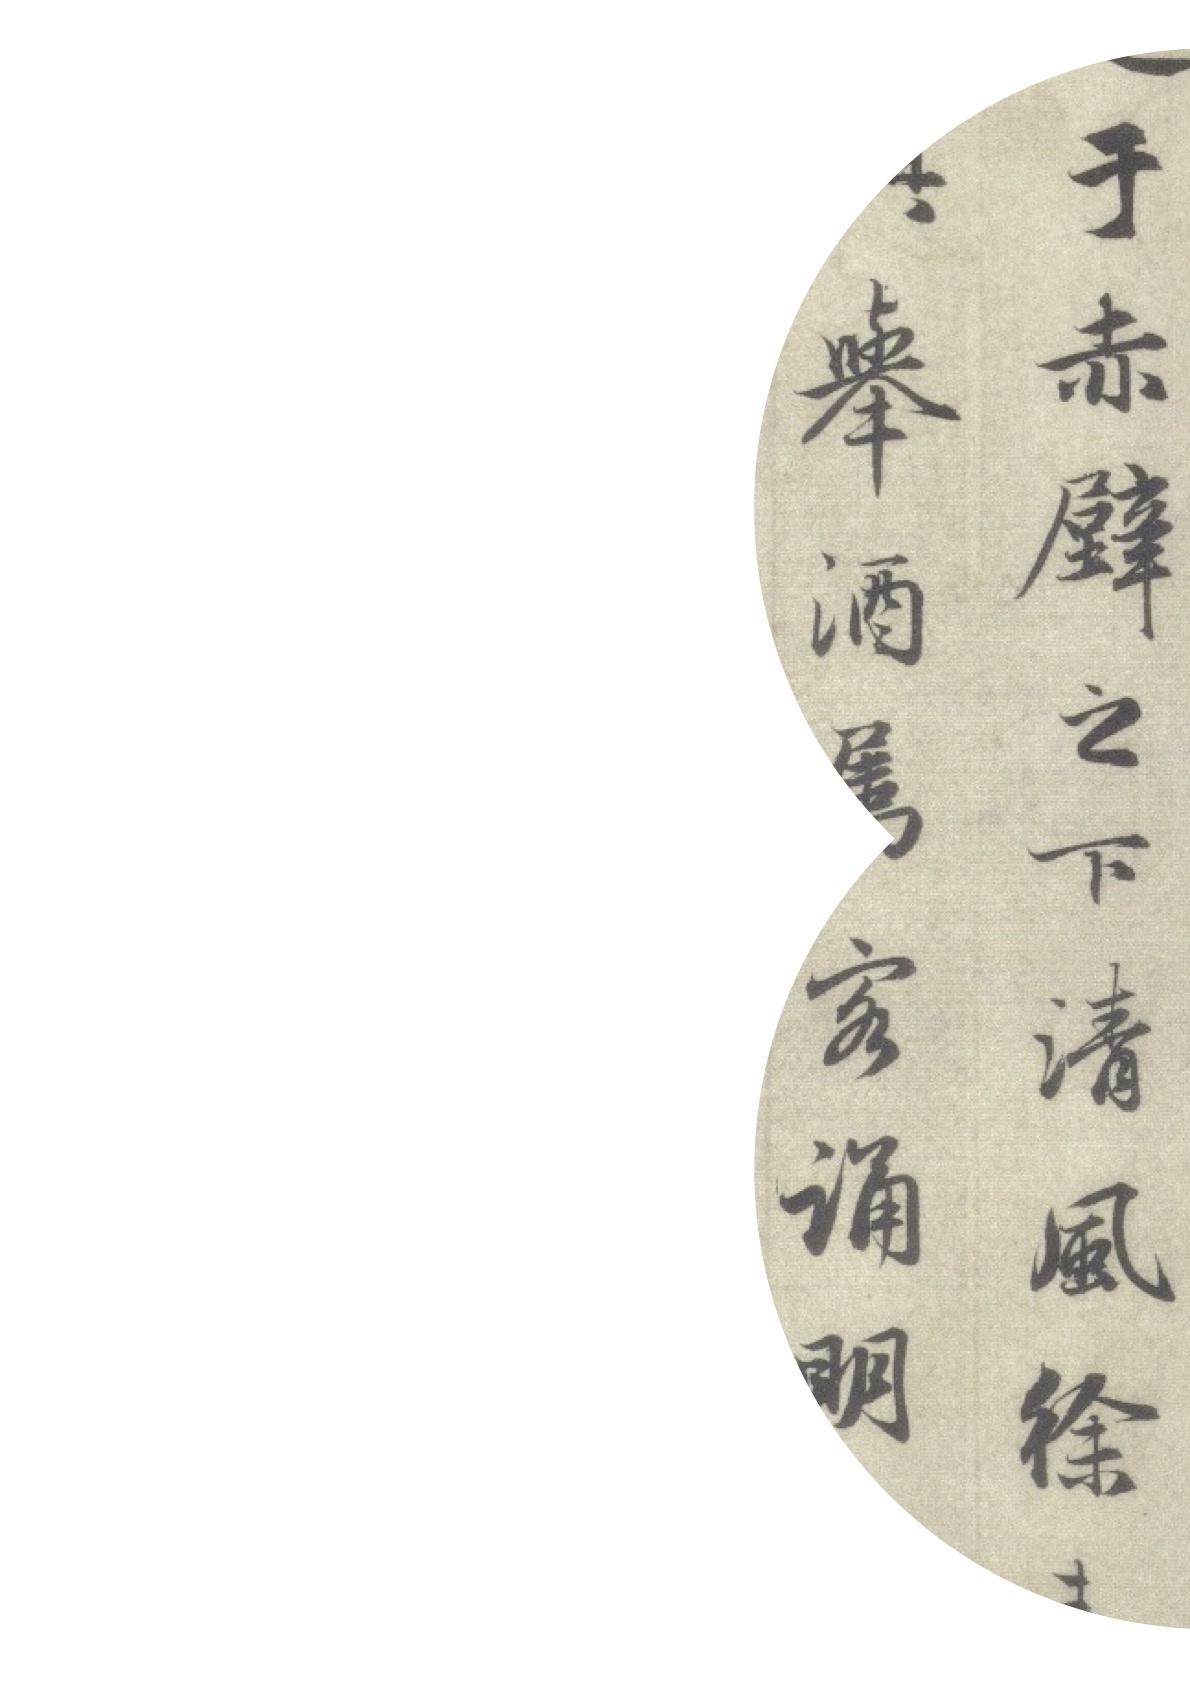 于赤壁之下清風徐
舉酒屬客誦明